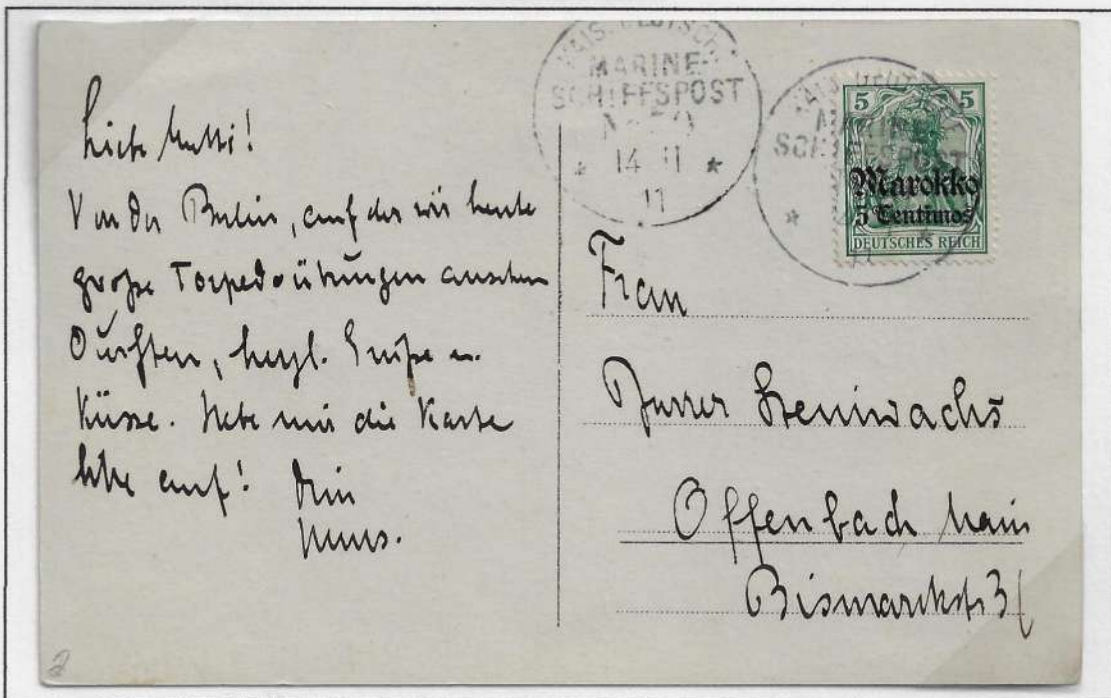 Liebe Mutti!
Von der Berlin, auf der wir heute
große Torpedoübungen ansehen
durften, herzl. Grüße u.
Küsse. Hebe mir die Karte
bitte auf! Dein
KAIS. DEUTSCHE
MARINE-
SCHIFFSPOST
14 11
11
KAIS. DEUTSCHE
MARINE
SCHIFFSPOST
11
5 5
Marokko
5 Centimos
DEUTSCHES REICH
Frau
Offenbach Main
2